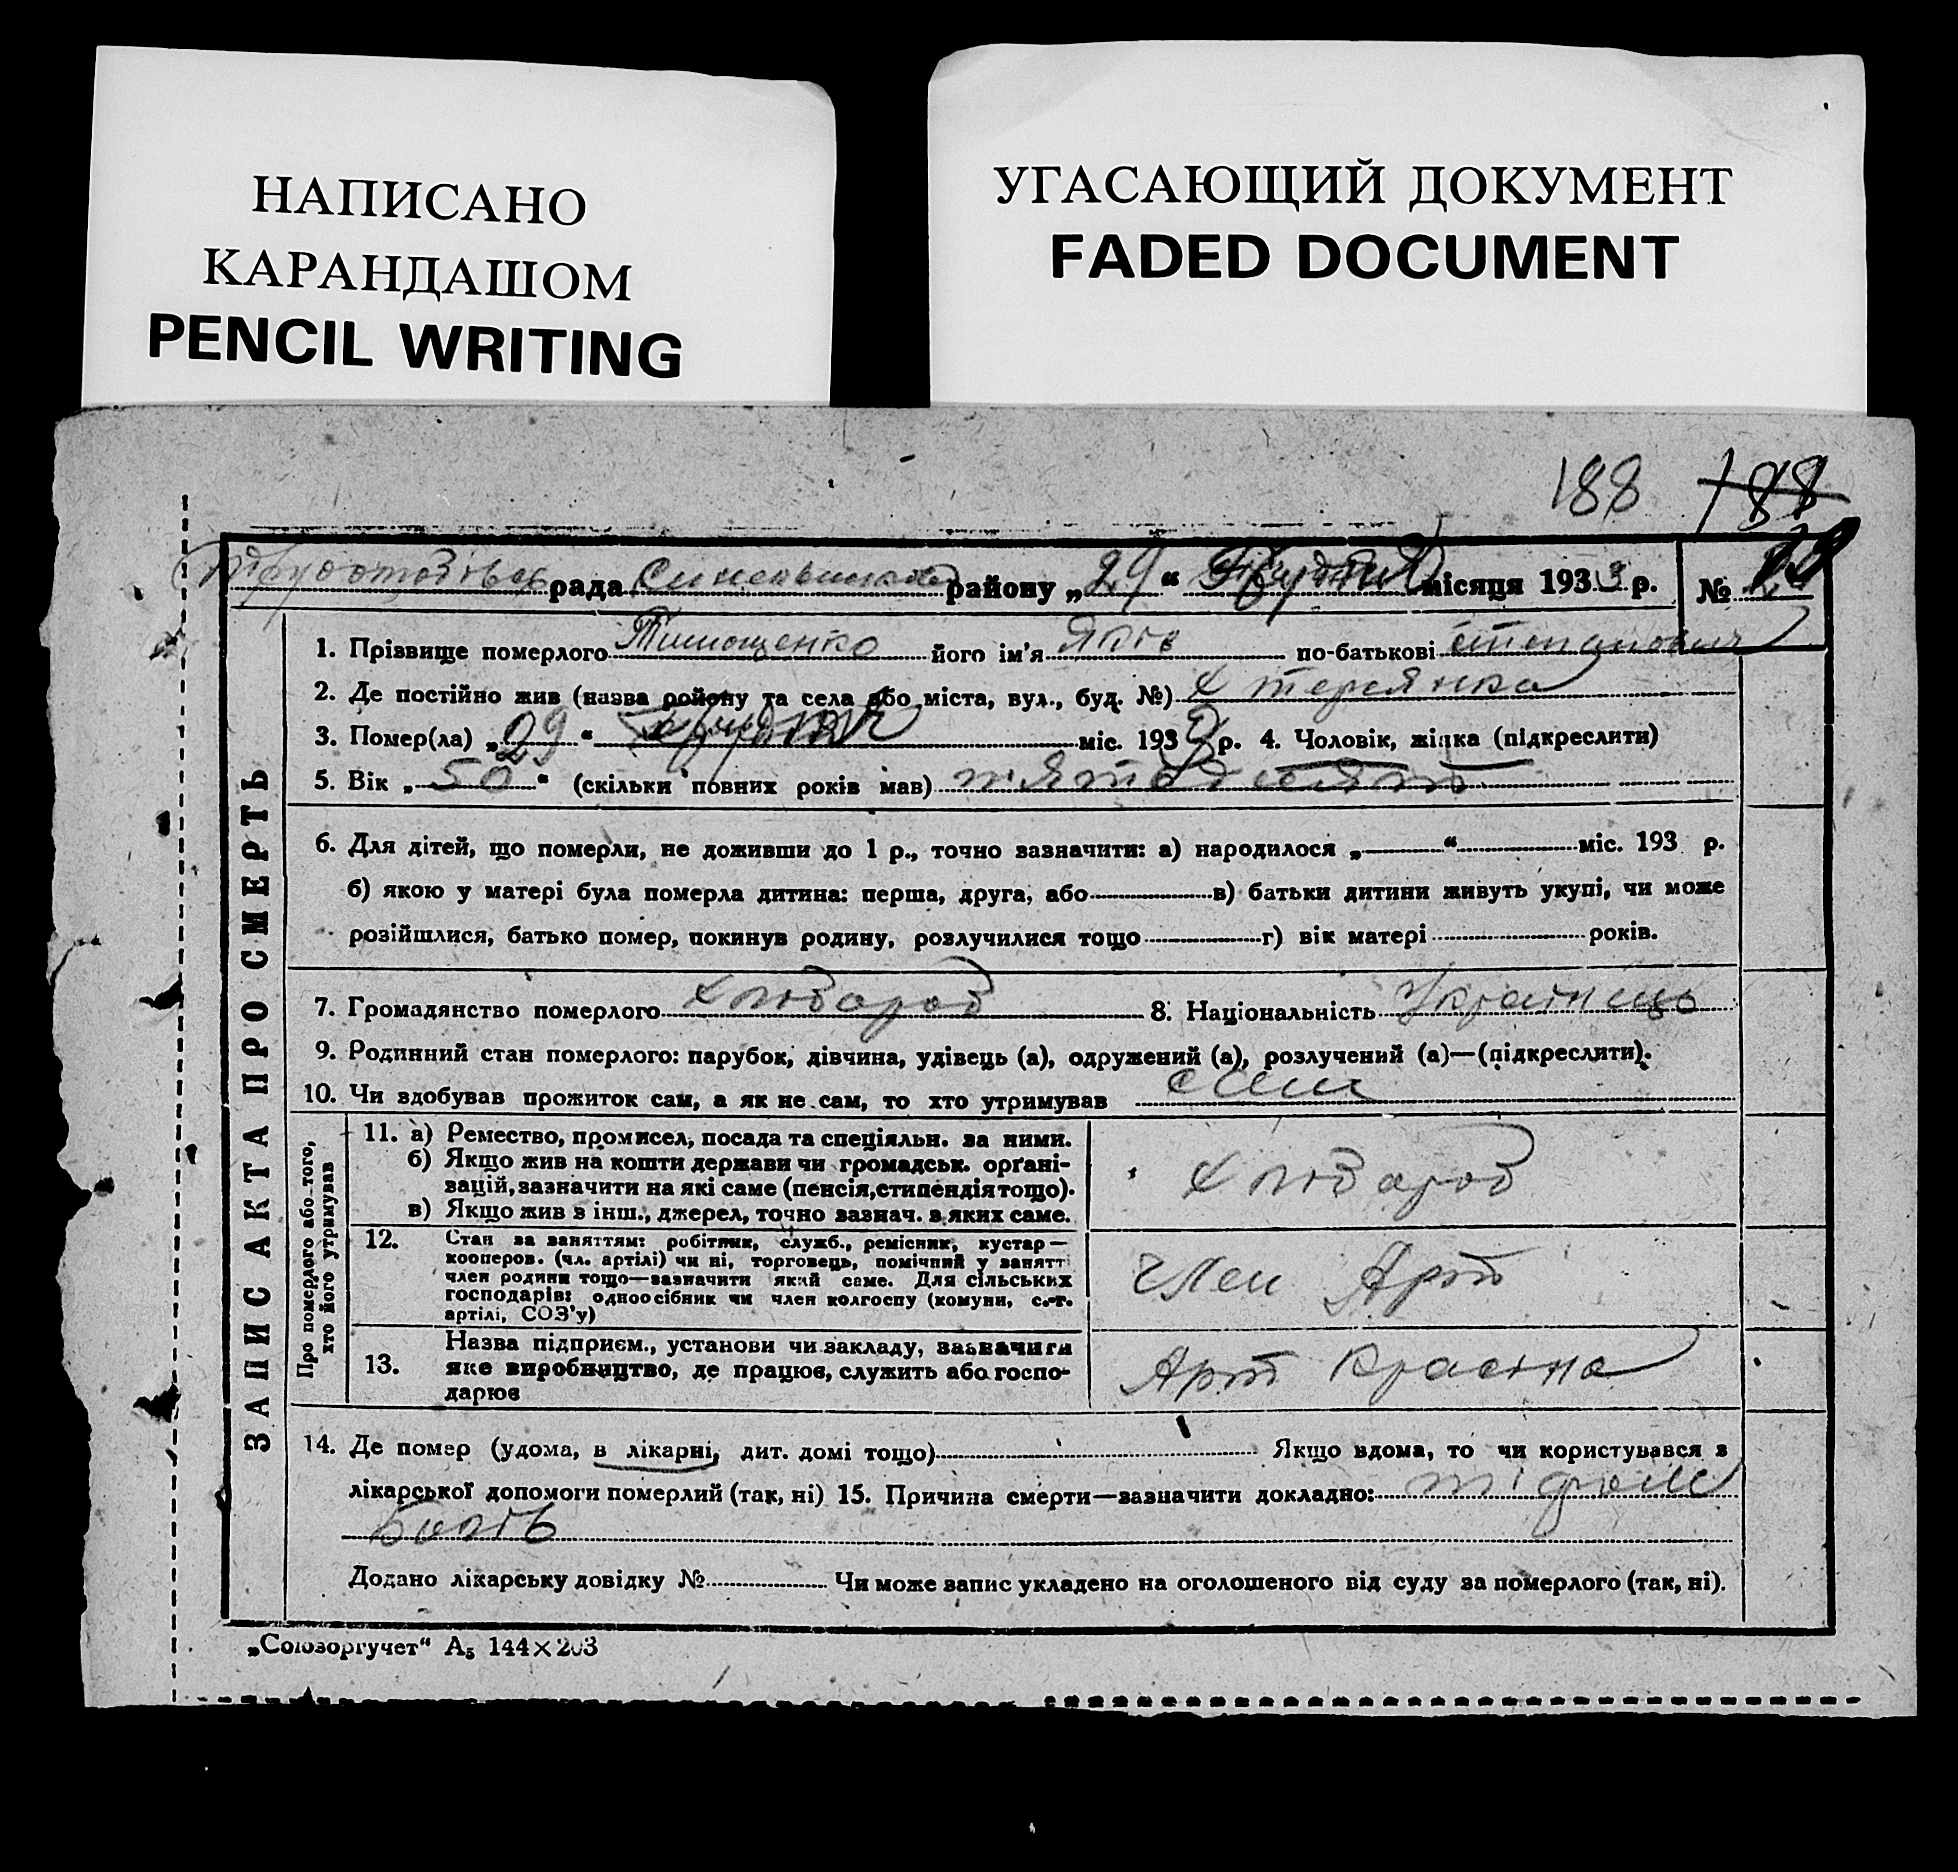 НАПИСАНО
КАРАНДАШОМ
PENCIL WRITING
УГАСАЮЩИЙ ДОКУМЕНТ
FADED DOCUMENT
188 188
рада району „29“ місяця 1933 р. №
ЗАПИС АКТА ПРО СМЕРТЬ
1. Прізвище померлого Тимощенко його ім'я Яків по-батькові степанович
2. Де постійно жив (назва району та села або міста, вул., буд. №)
3. Помер(ла) „29“ міс. 193 р. 4. Чоловік, жінка (підкреслити)
5. Вік „50“ (скільки повних років мав)
6. Для дітей, що померли, не доживши до 1 р., точно зазначити: а) народилося „ “ міс. 193 р.
б) якою у матері була померла дитина: перша, друга, або в) батьки дитини живуть укупі, чи може
розійшлися, батько помер, покинув родину, розлучилися тощо г) вік матері років.
7. Громадянство померлого хлібороб 8. Національність Українець
9. Родинний стан померлого: парубок, дівчина, удівець (а), одружений (а), розлучений (а)—(підкреслити).
10. Чи здобував прожиток сам, а як не сам, то хто утримував сам
Про померлого або того,
хто його утримував
11. а) Ремество, промисел, посада та спеціяльн. за ними.
б) Якщо жив на кошти держави чи громадськ. органі-
зацій, зазначити на які саме (пенсія, стипендія тощо).
в) Якщо жив з інш., джерел, точно зазнач. з яких саме.
хлібороб
12. Стан за заняттям: робітник, служб., ремісник, кустар—
кооперов. (чл. артілі) чи ні, торговець, помічний у занятт
член родини тощо—зазначити який саме. Для сільських
господарів: одноосібник чи член колгоспу (комуни, с.-г.
артілі, СОЗ'у)
член Арт
13. Назва підприєм., установи чи закладу, зазначити
яке виробництво, де працює, служить або госпо-
дарює
Арт
14. Де помер (удома, в лікарні, дит. домі тощо) Якщо вдома, то чи користувався з
лікарської допомоги померлий (так, ні) 15. Причина смерти—зазначити докладно:
Додано лікарську довідку № Чи може запис укладено на оголошеного від суду за померлого (так, ні).
„Союзоргучет“ А₅ 144×203